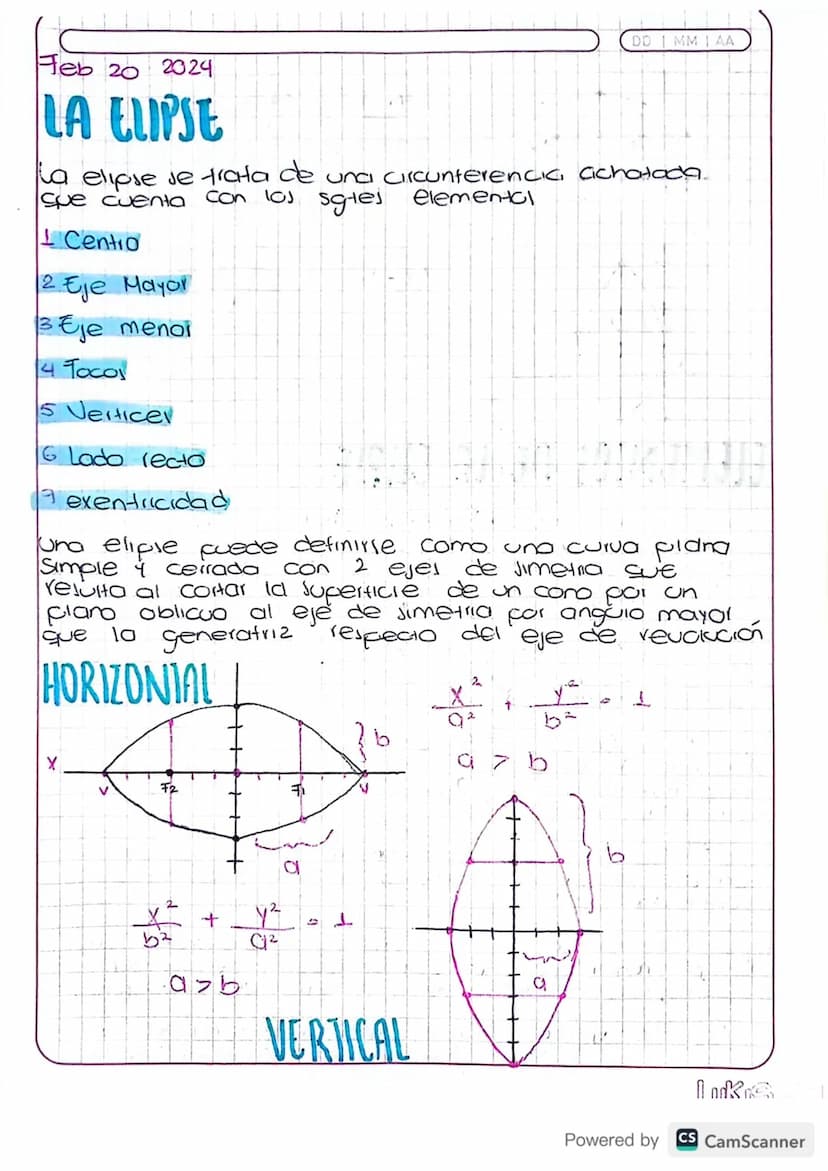 DD | MM | AA
Feb 20 2024
LA ELIPSE
La elipse se trata de una circunferencia achatada
que cuenta con los sgtes elementos
1 Centro
2 Eje Mayor
3 Eje menor
4 Focos
5 Vertices
6 Lado recto
7 exentricidad
Una elipse puede definirse como una curva plana
simple y cerrada con 2 ejes de simetria que
resulta al cortar la superficie de un cono por un
plano oblicuo al eje de simetria por angulo mayor
que la generatriz respecto del eje de revolución
HORIZONTAL
x²/a² + y²/b² = 1
a > b
X
b
V F2 F1 V
a
b
x²/b² + y²/a² = 1
a > b
a
VERTICAL
Powered by CS CamScanner